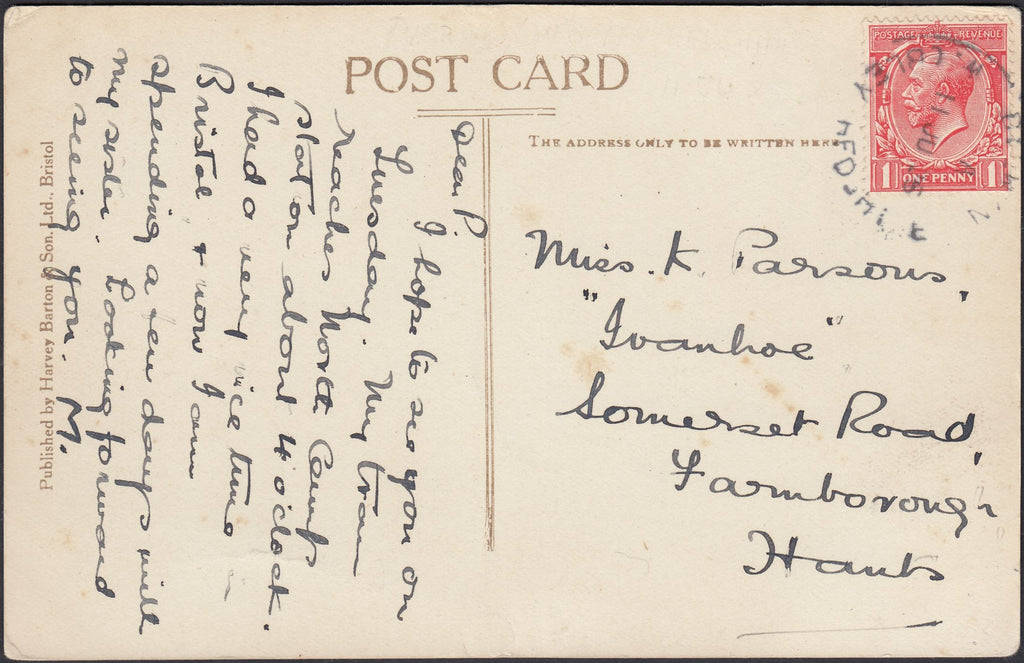 POST CARD
THE ADDRESS ONLY TO BE WRITTEN HERE
POSTAGE REVENUE
1 ONE PENNY 1
Dear P.
I hope to see you on
Tuesday. My train
reaches North Camp
station about 4 o'clock.
I had a very nice time
Bristol & now I am
spending a few days with
my sister. Looking forward
to seeing you. M.
Miss. K. Parsons,
"Ivanhoe"
Somerset Road,
Farnborough
Hants
Published by Harvey Barton & Son, Ltd., Bristol